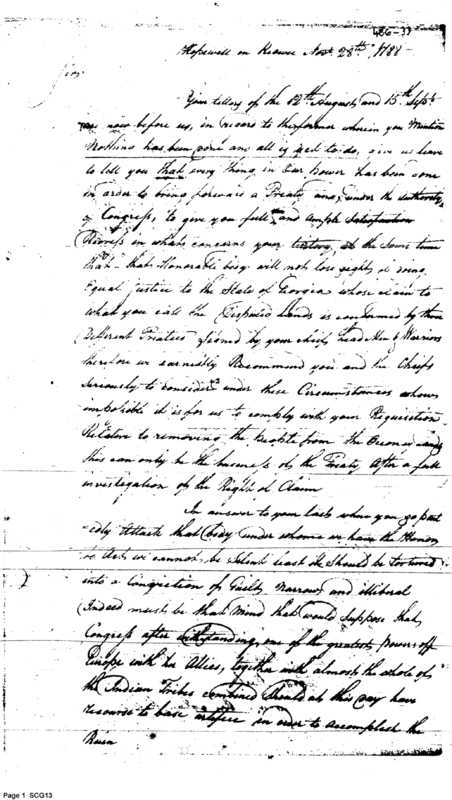 486-33
Hopewell on Keowee Novr 28th 1788
Sir
Your letters of the 12th August and 15th Septr
now before us, in regard to the former wherein you Mention
Nothing has been done and all is yet to do, give us leave
to tell you that every thing in Our power has been done
in order to bring forward a Treaty and under the authority
of Congress, to give you full and ample Satisfaction
Redress in what concerns your territory, at the Same time
that that Honorable body will not lose sight of doing
Equal justice to the State of Georgia whose claim to
what you call the Disputed Lands is confirmed by three
Different Treaties Signed by your chiefs, head Men & Warriors
therefore we earnestly Recommend you and the Chiefs
Seriously to consider under these Circumstances how
impossible it is for us to comply with your Requisition
Relative to removing the people from the Oconee lands
this can only be the business of the Treaty after a full
investigation of the Right of Claim
In answer to your last when you so point
edly Attack that body under whome we have the Honor
to Act, we cannot be Silent least it Should be tortured
into a Conviction of Guilt, Narrow and illiberal
Indeed must be that Mind that would Suppose that
Congress after withstanding one of the greatest powers off
Europe with her Allies, together with almost the whole of
the Indian Tribes combined Should at this day have
recourse to base artifice in order to accomplish the
Ruin
Page 1 SCG13